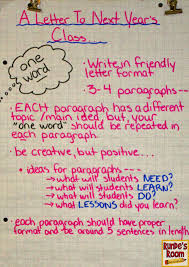 A Letter To Next Year's
Class
one
word
· Write in friendly
letter format
· 3-4 paragraphs--
· EACH paragraph has a different
topic/main idea, but, your
"one word" should be repeated in
each paragraph.
· be creative, but positive...
· ideas for paragraphs---
→ what will students NEED?
→ what will students LEARN?
→ what will students DO?
→ what LESSONS did you learn?
· each paragraph should have proper
format and be around 5 sentences in length
RUNDE'S
ROOM